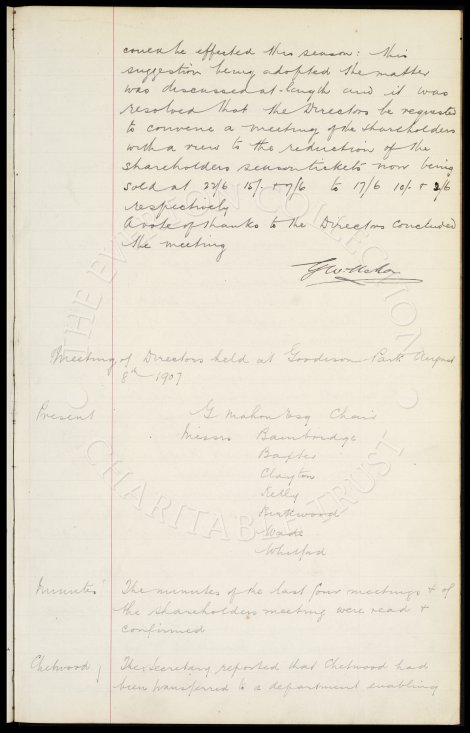 could be effected this season: this
suggestion being adopted the matter
was discussed at length and it was
resolved that the Directors be requested
to convene a meeting of the shareholders
with a view to the reduction of the
shareholders season tickets now being
sold at 22/6 15/- & 7/6 to 17/6 10/- &
respectively
A vote of thanks to the Directors concluded
the meeting
Meeting of Directors held at Goodison Park August
8th 1907
Present G Mahon Esq Chair
Messrs Bainbridge
Baxter
Clayton
Kelly
Kirkwood
Wade
Whitford
Minutes The minutes of the last four meetings & of
the shareholders meeting were read &
confirmed
Chetwood The secretary reported that Chetwood had
been transferred to a department enabling
THE EVERTON COLLECTION
CHARITABLE TRUST